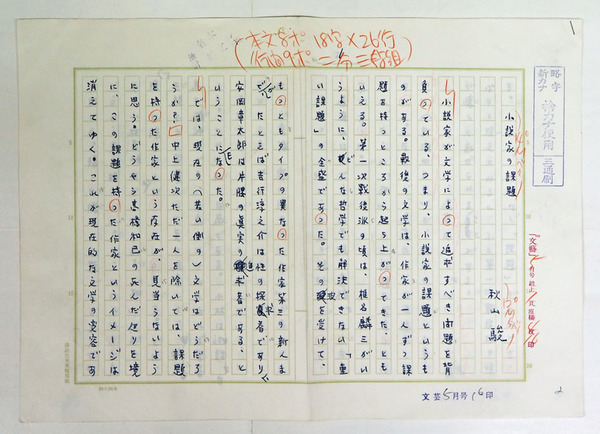 1
(本文8ポ 18字×26行
行間9ポ 二分 三段組)
略字
新カナ
捨カナ使用
三通り
小説家の課題
秋山 駿
小説家が文学によって追求すべき問題を背
負っている、つまり、小説家の課題というも
のがある。戦後の文学は、作家が一人ずつ課
題を持つところから起ち上がってきた、とも
いえる。第一次戦後派の頃は、椎名麟三がい
うように、「どんな哲学でも解決できない「重
い課題」の全盛であった。その後を受けて、
もっともタイプの異なった作家第三の新人ま
で。たとえば吉行淳之介は性の探求者であり、
安岡章太郎は片隅の真実の追求者である、と
いうことになった。
では、現在の(若い側の)文学はどうだろ
うか?中上健次ただ一人を除いては、課題
を持った作家という存在が、見当らないよう
に思う。どうやら高橋和巳の死んだ辺りを境
に、この課題を持った作家というイメージは
消えてゆく。これが現在的な文学の変容であ
文芸5月号 16印
2